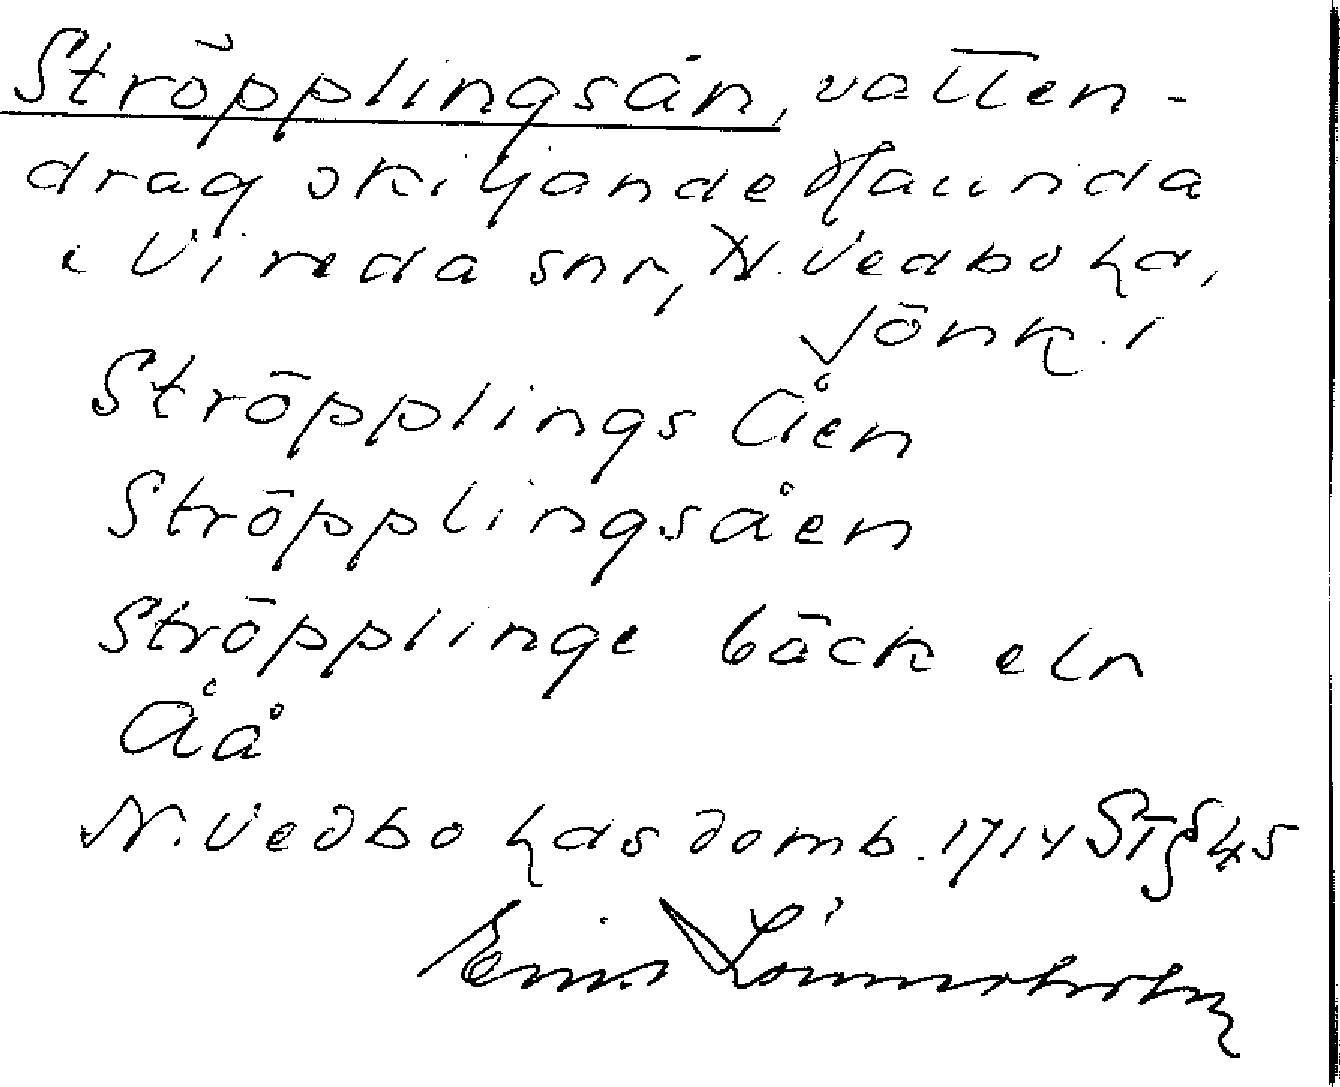 Ströpplingsån, vatten-
drag skiljande Haurida
i Vireda snr, N. Vedbo hd,
Jönk. l
Ströpplings Åen
Ströpplingsåen
Ströpplinge bäck eln
Åå
N. Vedbo hds domb. 1714 ST § 45